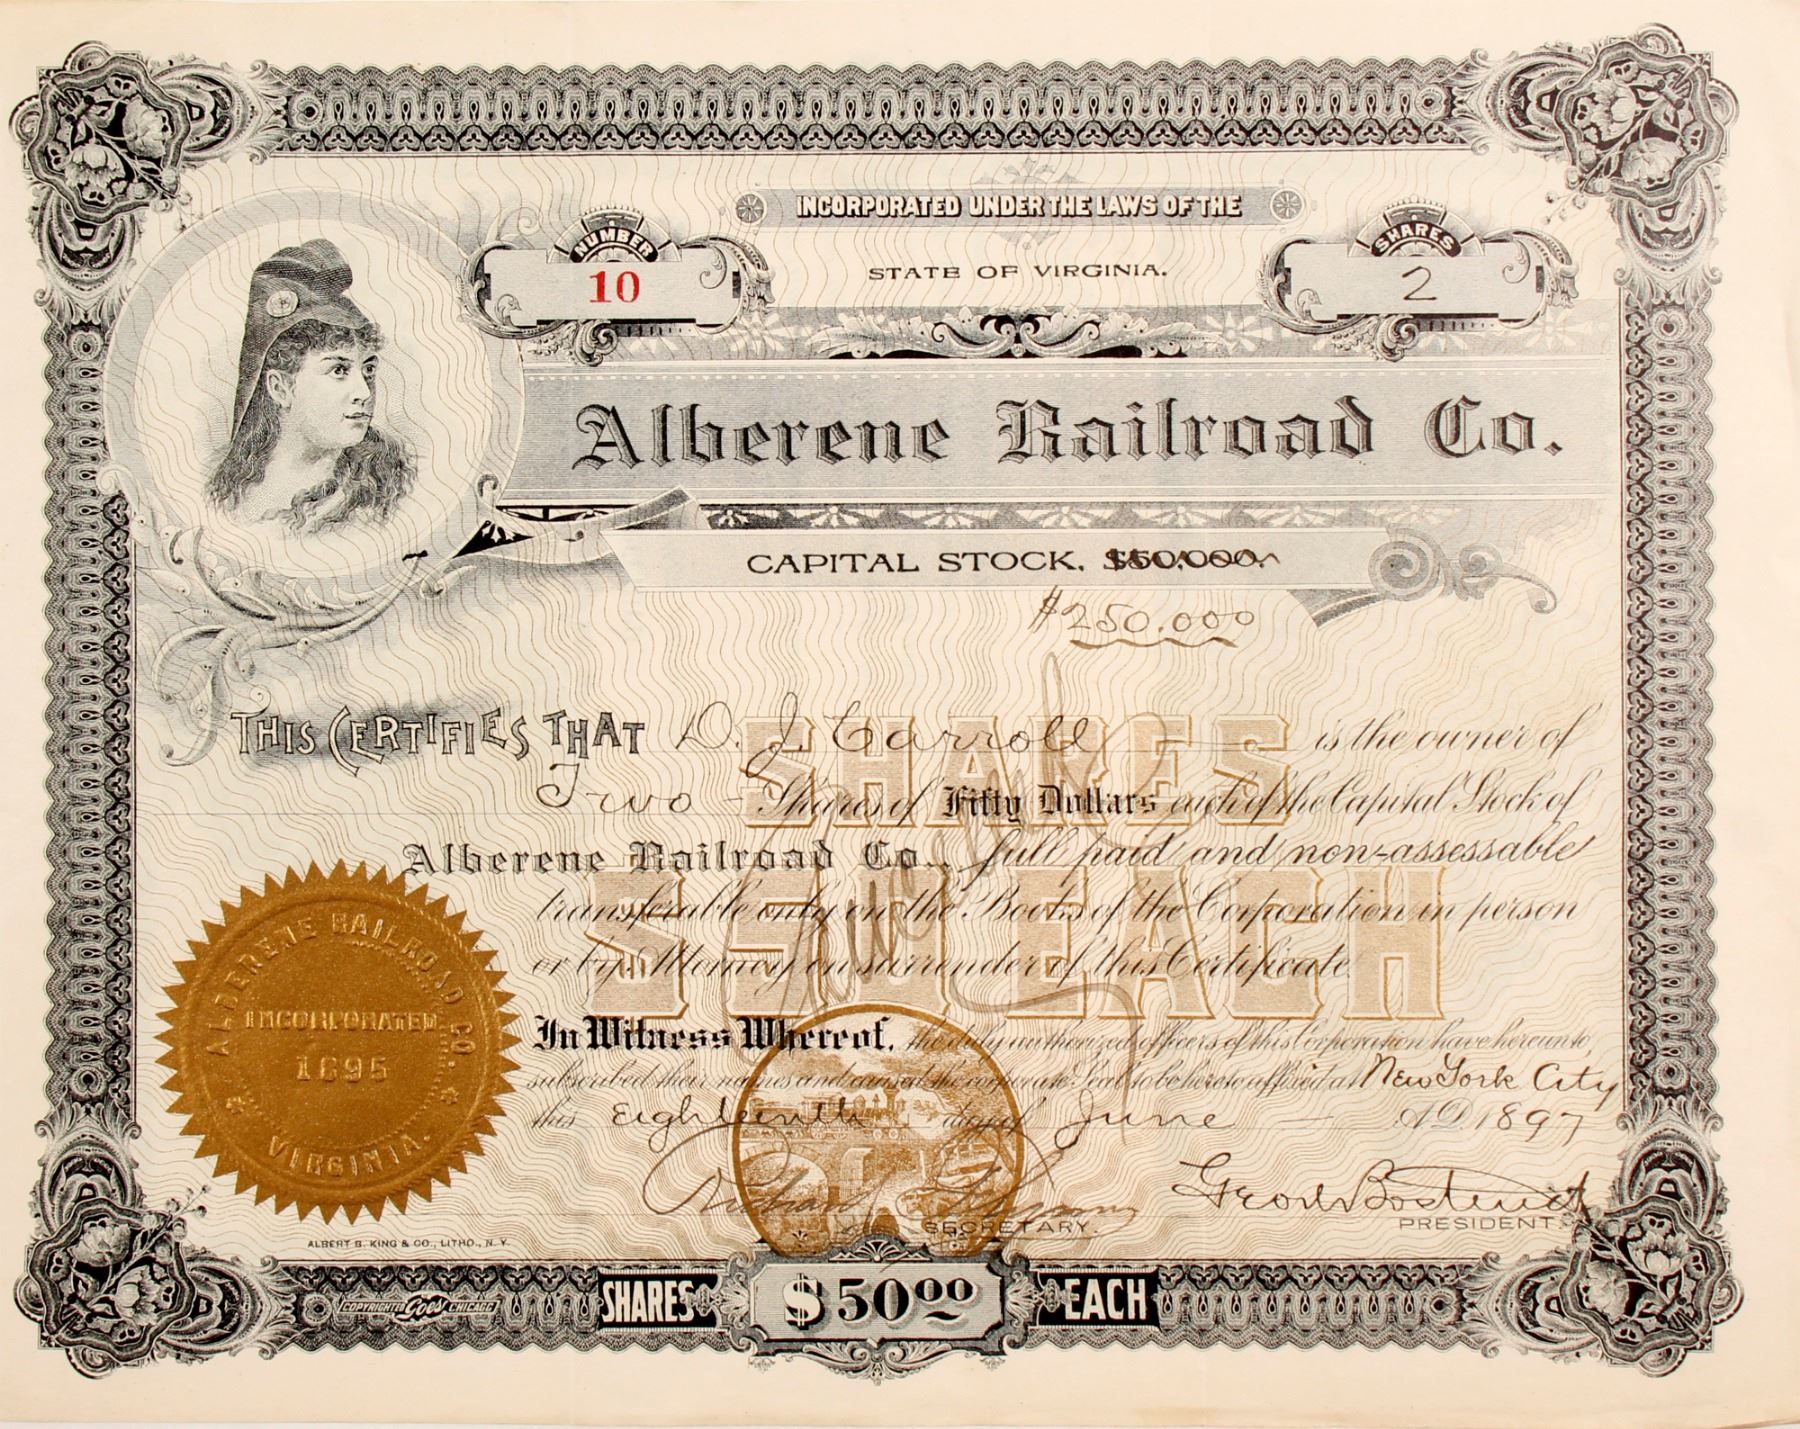 INCORPORATED UNDER THE LAWS OF THE
NUMBER
10
SHARES
2
STATE OF VIRGINIA.
Alberene Railroad Co.
CAPITAL STOCK, $50,000.
$250.000
THIS CERTIFIES THAT D. J. Carroll is the owner of
Two Shares of Fifty Dollars each of the Capital Stock of
Alberene Railroad Co., full paid and non-assessable
transferable only on the Books of the Corporation in person
or by Attorney on surrender of this Certificate.
SHARES
$50 EACH
In Witness Whereof, the duly authorized officers of this Corporation have hereunto
subscribed their names and caused the corporate Seal to be hereto affixed at New York City
this Eighteenth day of June A.D. 1897
SECRETARY.
PRESIDENT.
ALBERENE RAILROAD CO.
INCORPORATED
1895
VIRGINIA.
ALBERT B. KING & CO., LITHO., N. Y.
COPYRIGHTED Goes CHICAGO
SHARES $50.00 EACH